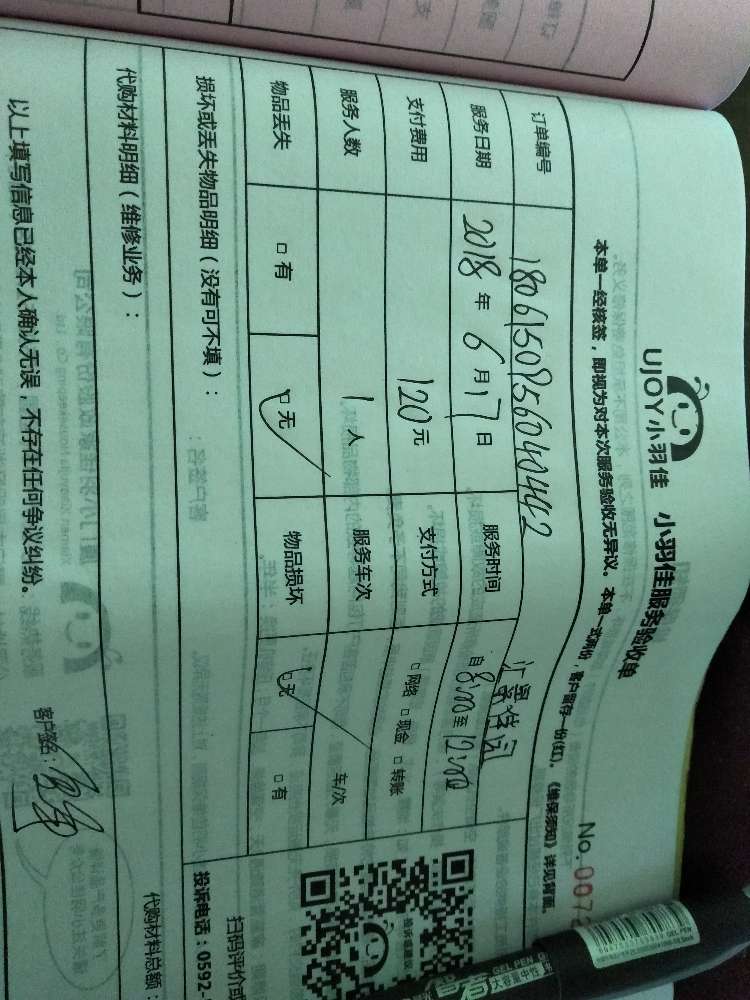 UJOY小羽佳 小羽佳服务验收单
No.007
本单一经核签，即视为对本次服务验收无异议。本单一式两份，客户留存一份(红)。《维保须知》详见背面。
订单编号 18061509560404442
服务日期 2018年6月17日 服务时间 自8:00至12:00
支付费用 120元 支付方式 □网络 □现金 □转账
服务人数 1人 服务车次 车/次
物品丢失 □有 □无 物品损坏 □无 □有
损坏或丢失物品明细（没有可不填）：
代购材料明细（维修业务）： 代购材料总额：
扫码评价或
投诉电话：0592-
以上填写信息已经本人确认无误，不存在任何争议纠纷。 客户签名：
GEL PEN
大容量中性